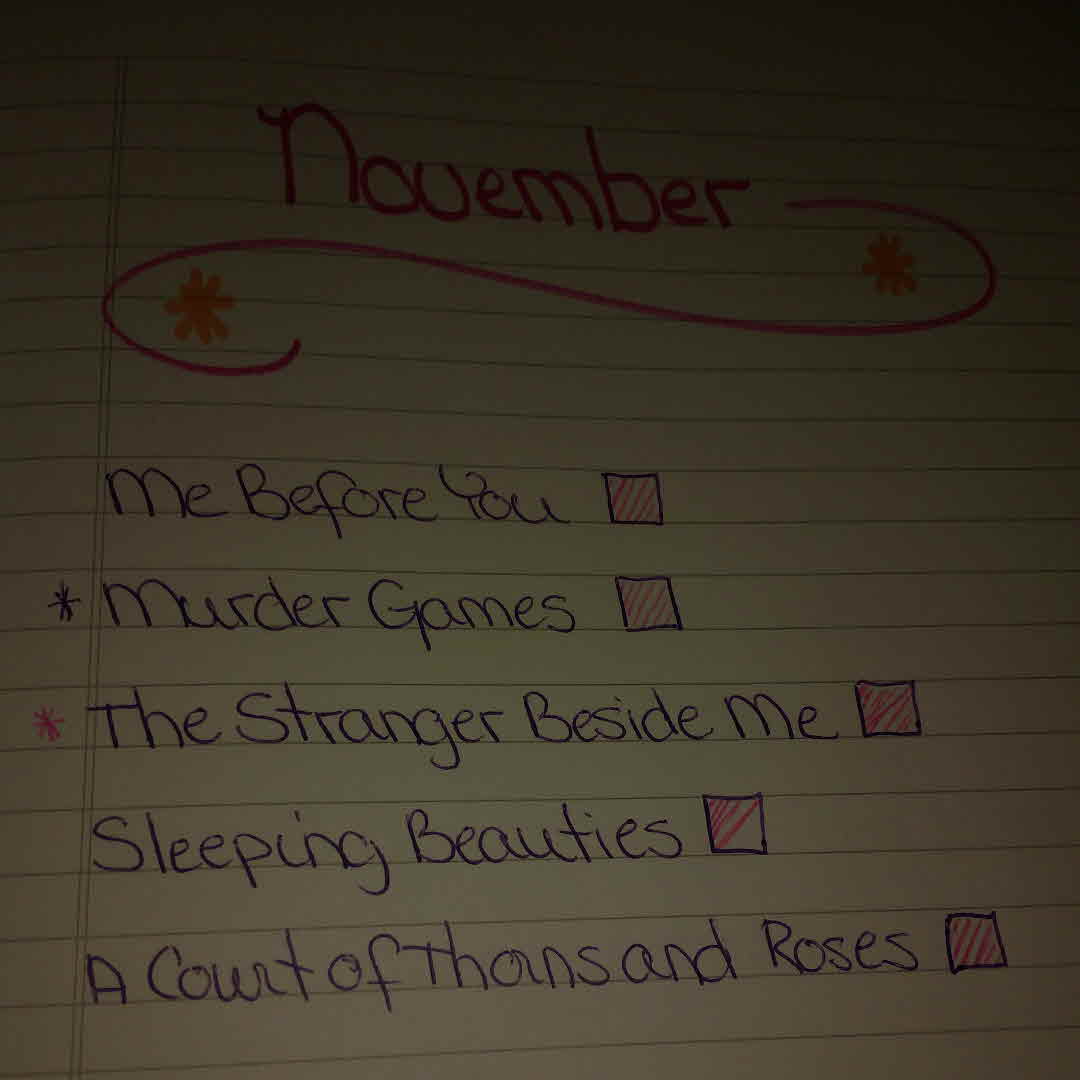 November
Me Before You
* Murder Games
* The Stranger Beside Me
Sleeping Beauties
A Court of Thorns and Roses